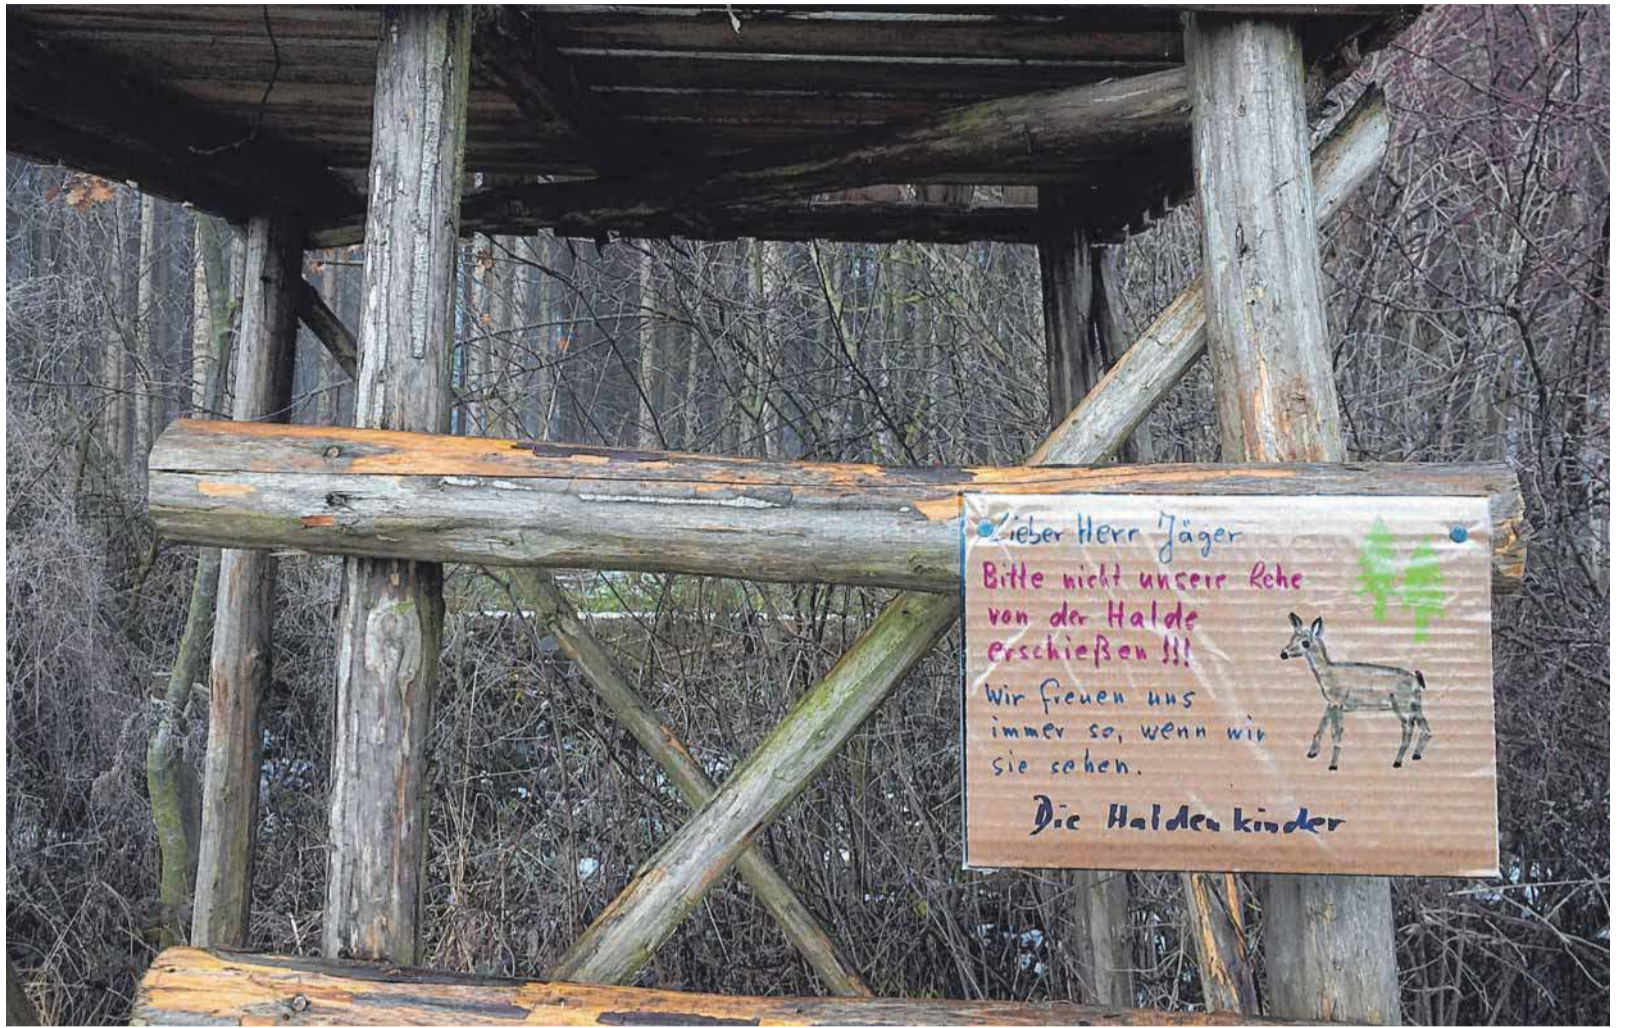 Lieber Herr Jäger
Bitte nicht unsere Rehe
von der Halde
erschießen !!!
Wir freuen uns
immer so, wenn wir
sie sehen.
Die Haldenkinder